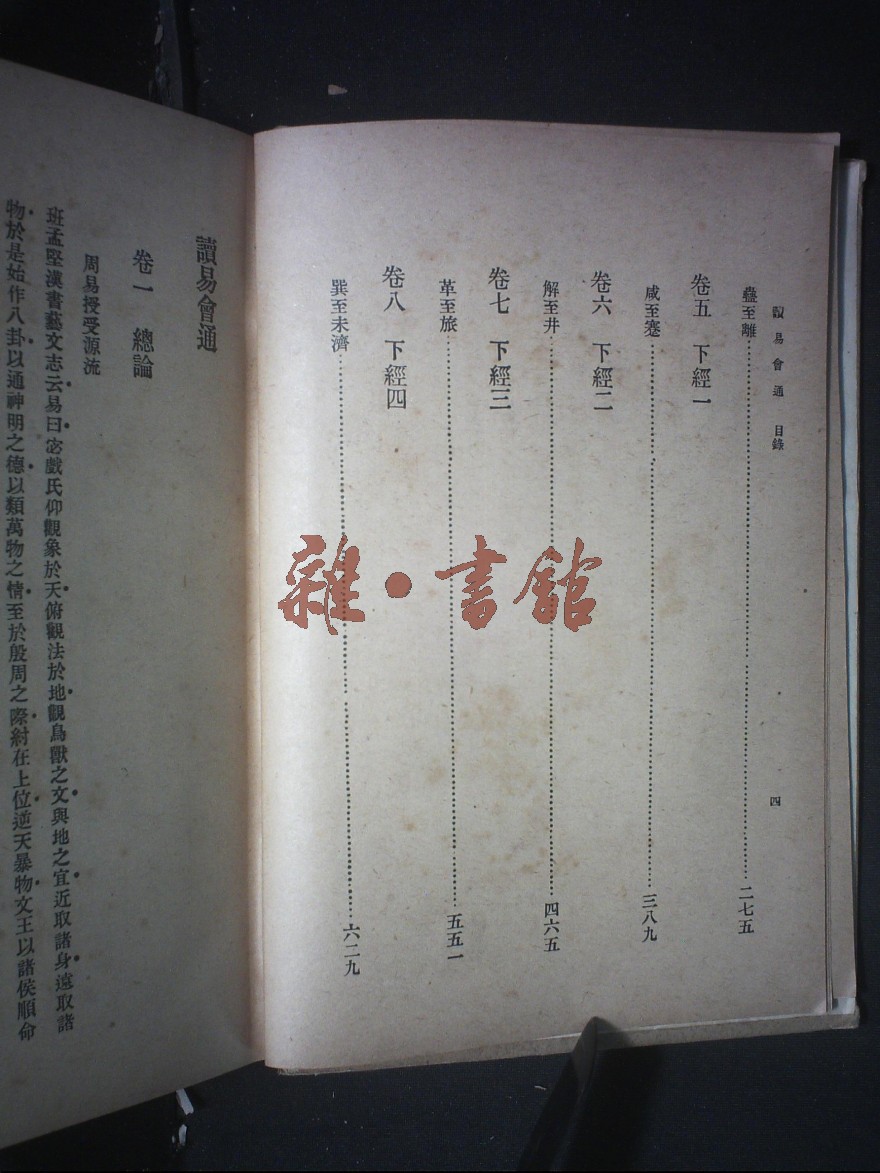 讀易會通 目錄
四
蠱至離……二七五
卷五 下經一
咸至蹇……三八九
卷六 下經二
解至井……四六五
卷七 下經三
革至旅……五五一
卷八 下經四
巽至未濟……六二九
讀易會通
卷一 總論
周易授受源流
班孟堅漢書藝文志云易曰宓戲氏仰觀象於天俯觀法於地觀鳥獸之文與地之宜近取諸身遠取諸
物於是始作八卦以通神明之德以類萬物之情至於殷周之際紂在上位逆天暴物文王以諸侯順命
雜·書館